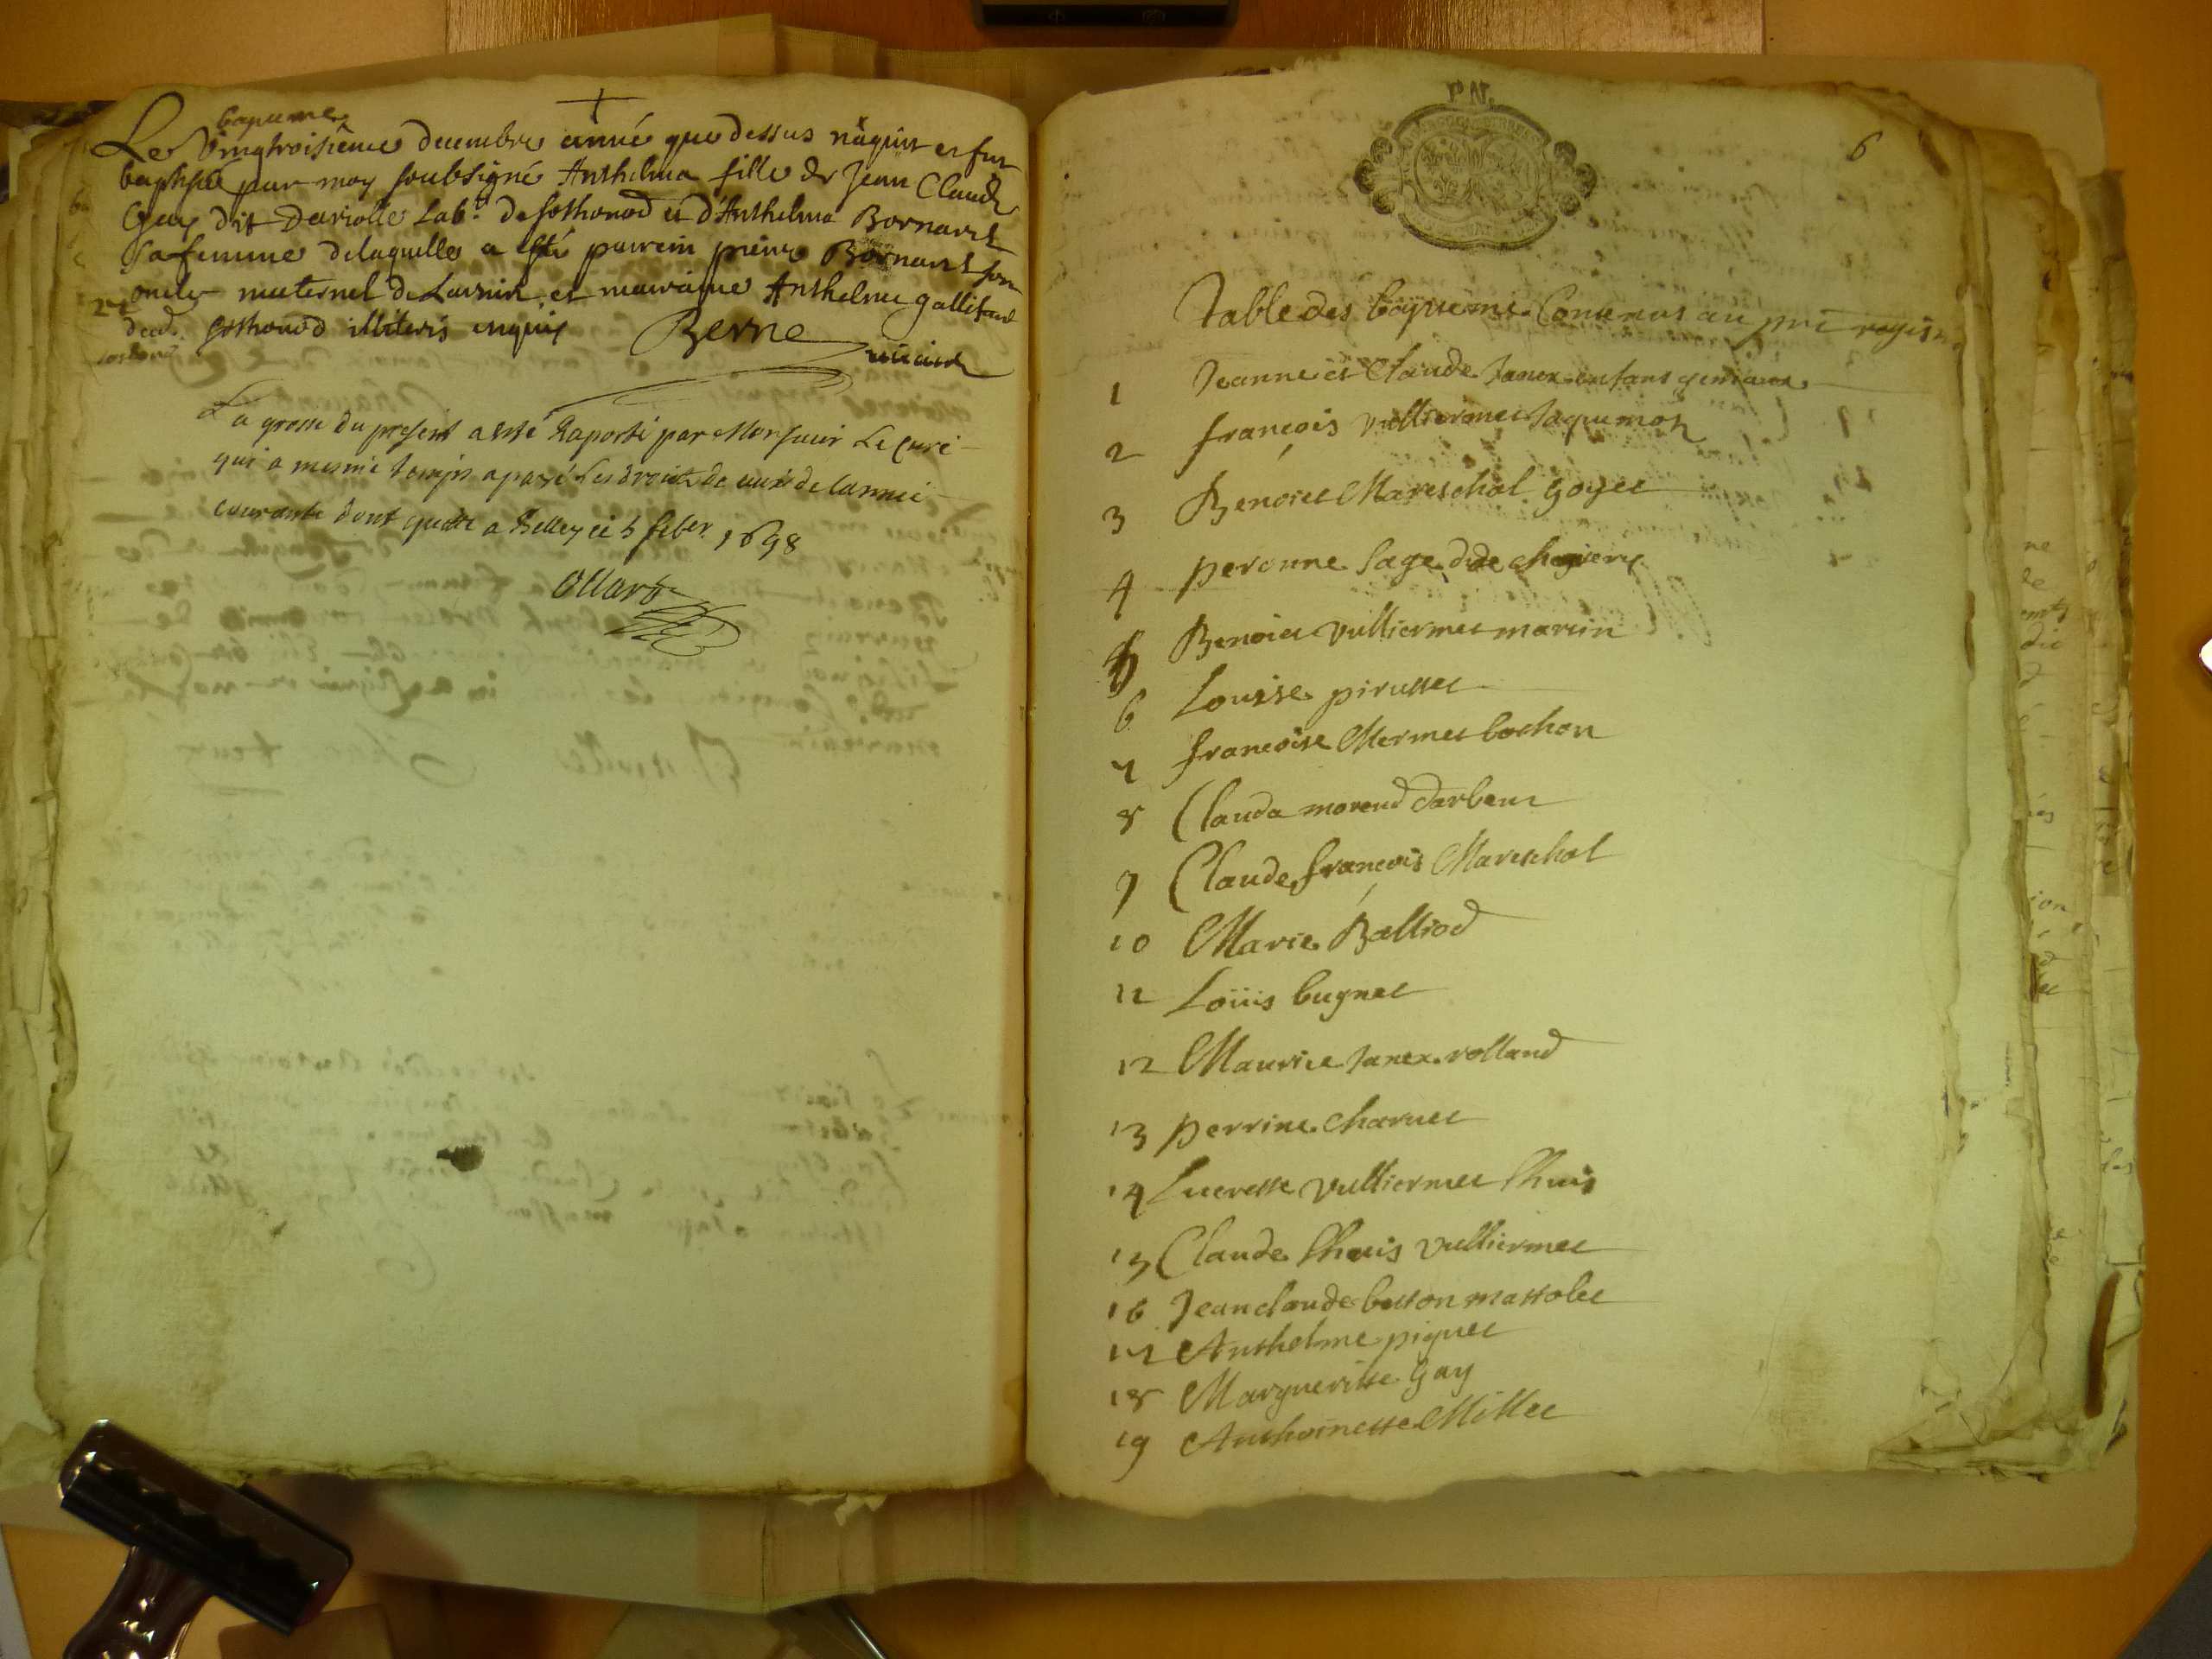 bapteme
Le Vingtroisieme decembre année que dessus nâquit et fut
baptisée par moy soubsigné Anthelma fille de Jean Claude
Guy dit Deriolle Lab.r de Sothonod et d'Anthelma Bornarel
sa femme de laquelle a esté parrein pierre Bornarel son
oncle maternel de Lavnin et marraine Anthelme gallifard
dud. Sothonod illiteris enquis Berne
La grosse du present a esté Raporté par Monsieur Le Curé
qui a mesme temps a payé Les droits de ceux de lannee
courante dont quitte a Belley ce 5 feber 1698
Ollard
6
Table des baptême Contenus au pnt regist
1 Jeanne et Claude Janex enfans gemeaux
2 françois vulliermet Jaquemot
3 Benoiet Mareschal goyet
4 peronne Sage dite
5 Benoiet vulliermet martin
6 Louise pirusset
7 françoise Mermet bochon
8 Clauda morend darbeur
9 Claude françois Mareschal
10 Marie Balliod
11 Loüis bugnet
12 Maurice Janex rolland
13 perrine Charvet
14 Lucresse vulliermet lhuis
15 Claude lhuis vulliermet
16 Jean claude betton massolet
17 Anthelme piquet
18 Marguerite Gay
19 Anthoinette Millet